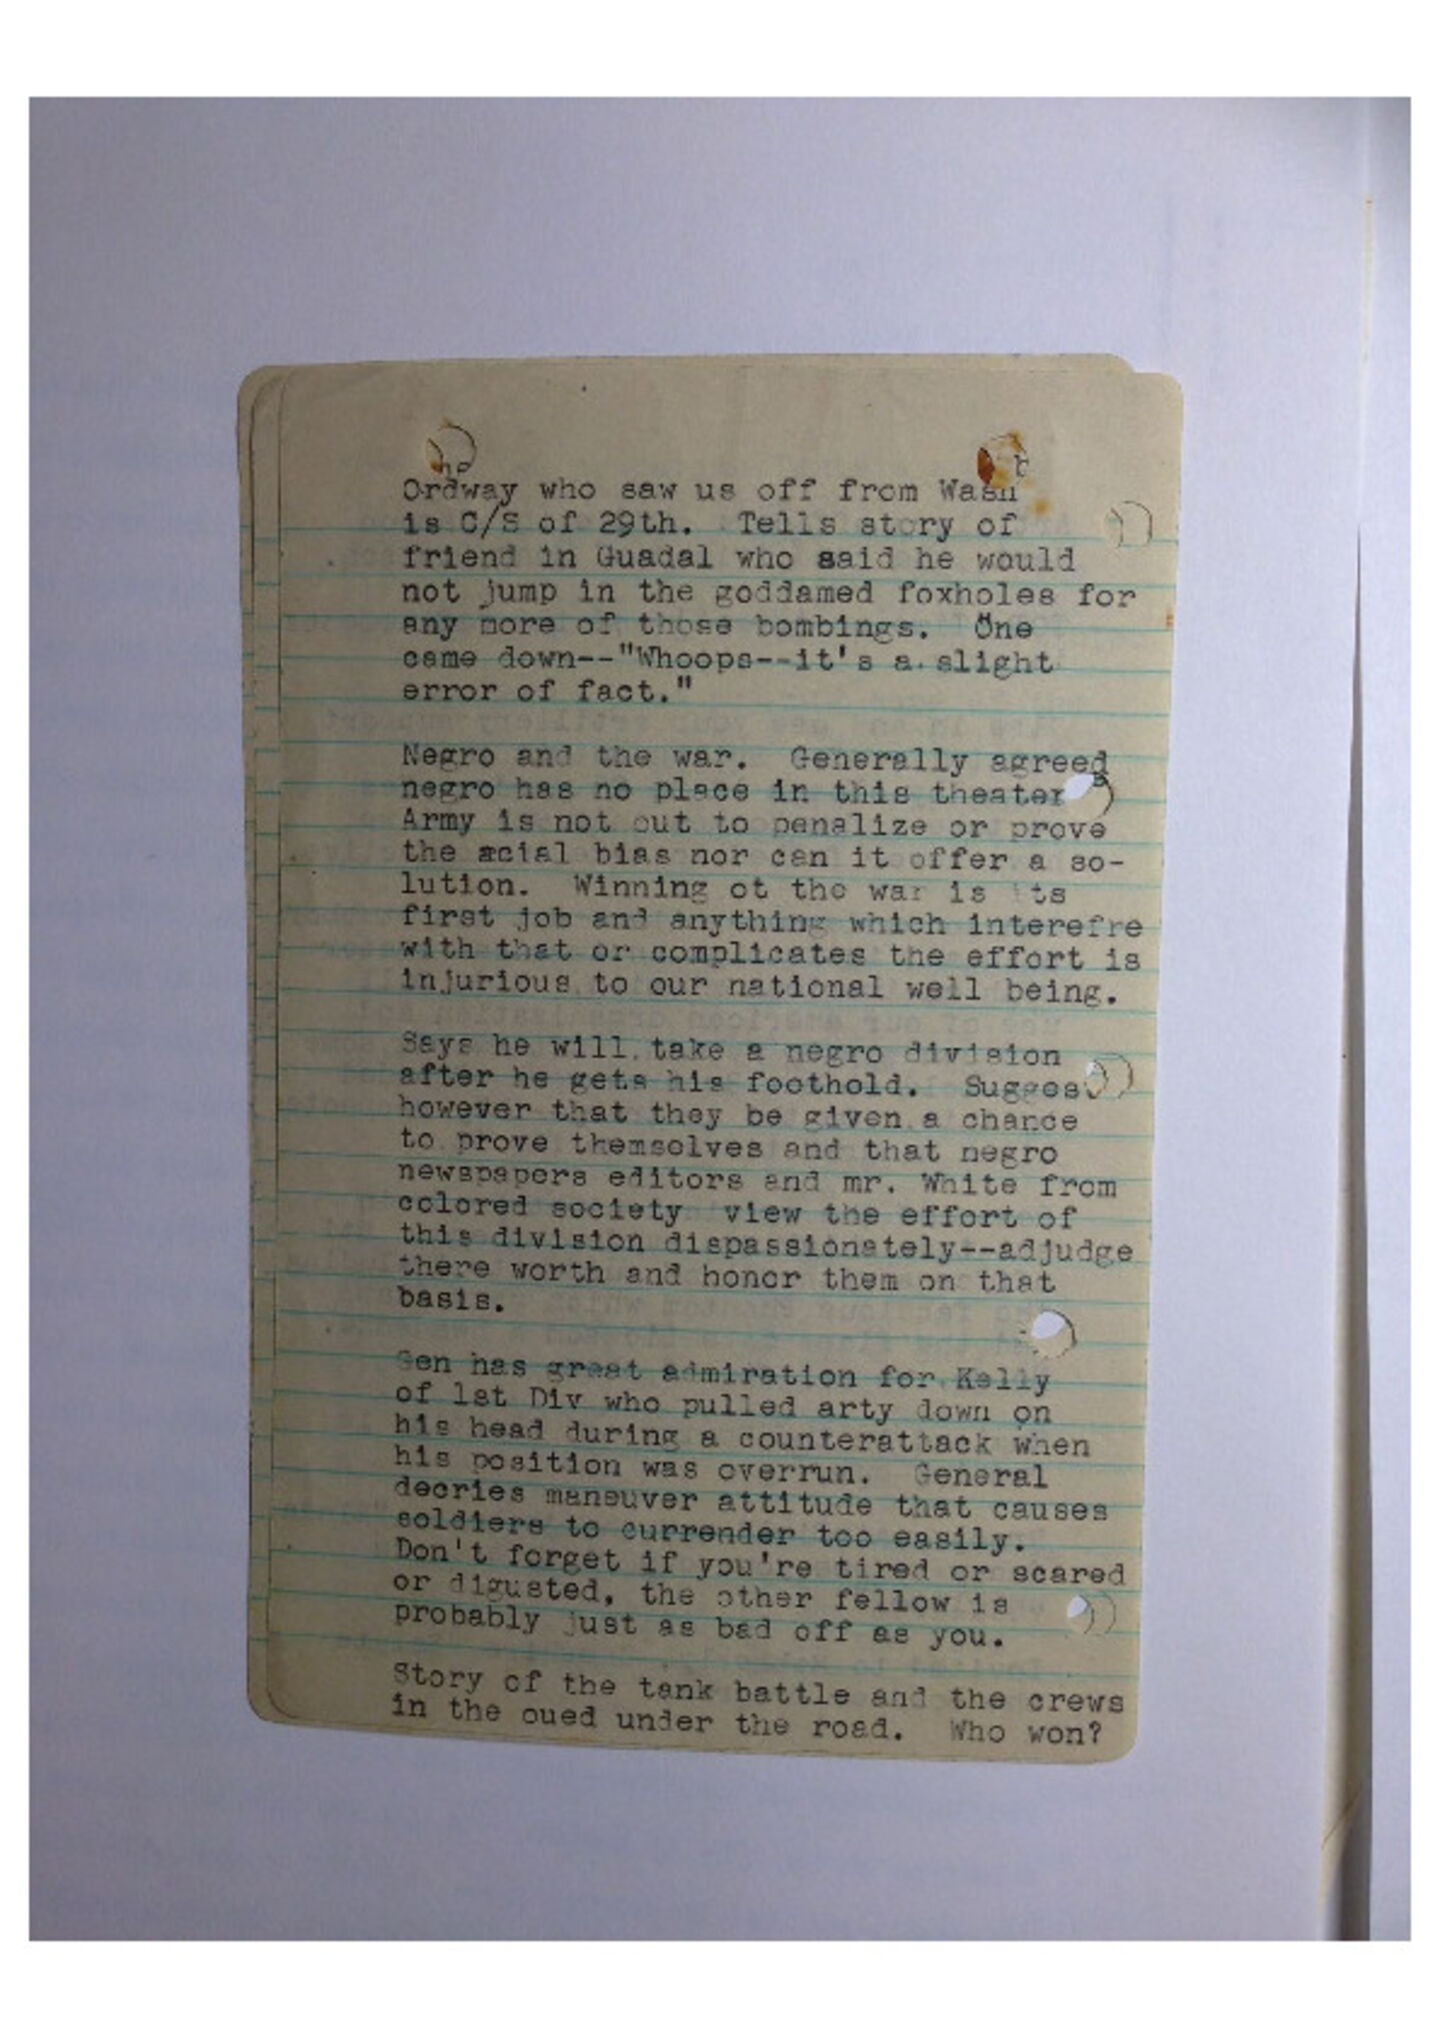 Ordway who saw us off from Wash
is C/S of 29th. Tells story of
friend in Guadal who said he would
not jump in the goddamed foxholes for
any more of those bombings. One
came down--"Whoops--it's a slight
error of fact."
Negro and the war. Generally agreed
negro has no place in this theater
Army is not out to penalize or prove
the acial bias nor can it offer a so-
lution. Winning ot the war is its
first job and anything which interefre
with that or complicates the effort is
injurious to our national well being.
Says he will take a negro division
after he gets his foothold. Sugges
however that they be given a chance
to prove themselves and that negro
newspapers editors and mr. White from
colored society view the effort of
this division dispassionately--adjudge
there worth and honor them on that
basis.
Gen has great admiration for Kelly
of 1st Div who pulled arty down on
his head during a counterattack when
his position was overrun. General
decries maneuver attitude that causes
soldiers to surrender too easily.
Don't forget if you're tired or scared
or digusted, the other fellow is
probably just as bad off as you.
Story of the tank battle and the crews
in the oued under the road. Who won?